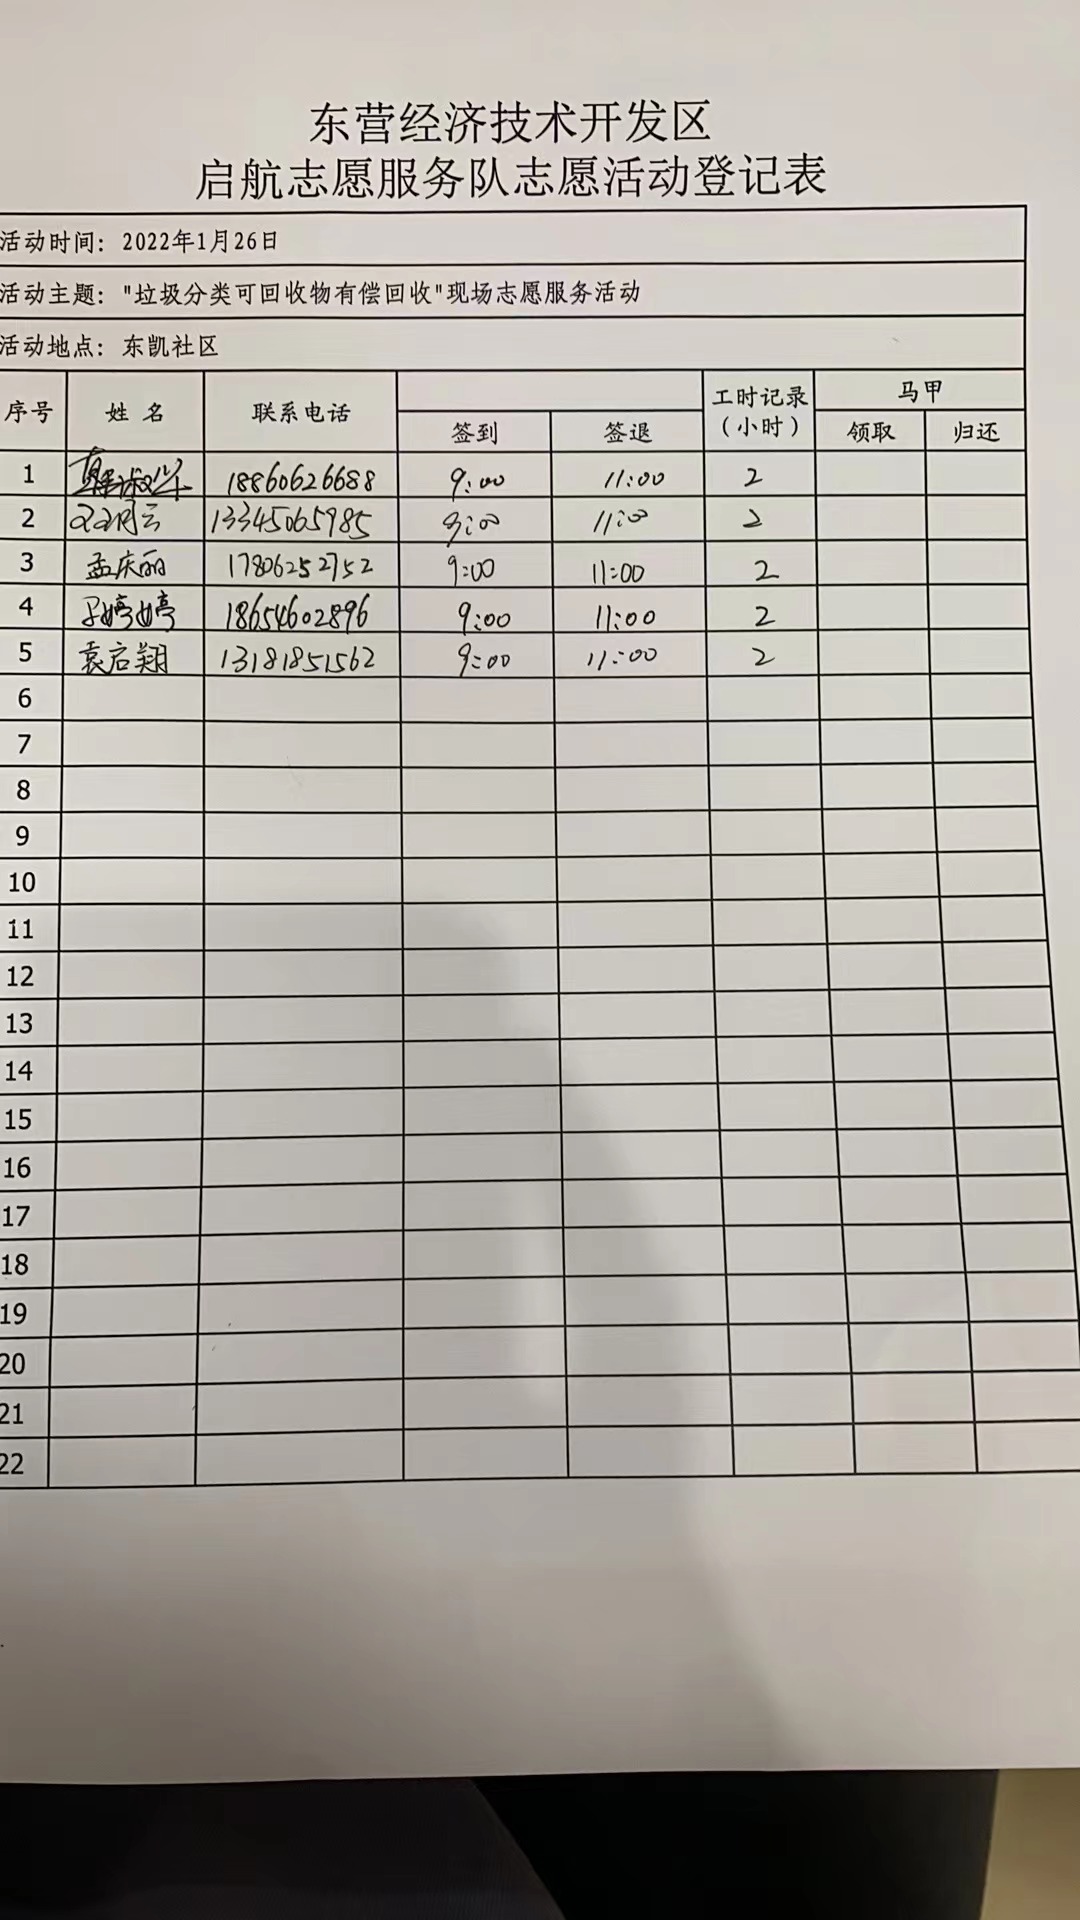 东营经济技术开发区
启航志愿服务队志愿活动登记表
活动时间: 2022年1月26日
活动主题: "垃圾分类可回收物有偿回收"现场志愿服务活动
活动地点: 东凯社区
序号 姓名 联系电话 签到 签退 工时记录(小时) 马甲 领取 归还
1 18860626688 9:00 11:00 2
2 13345065985 9:00 11:00 2
3 孟庆丽 17806252752 9:00 11:00 2
4 婷婷 18654602896 9:00 11:00 2
5 袁启翔 13181851562 9:00 11:00 2
6
7
8
9
10
11
12
13
14
15
16
17
18
19
20
21
22